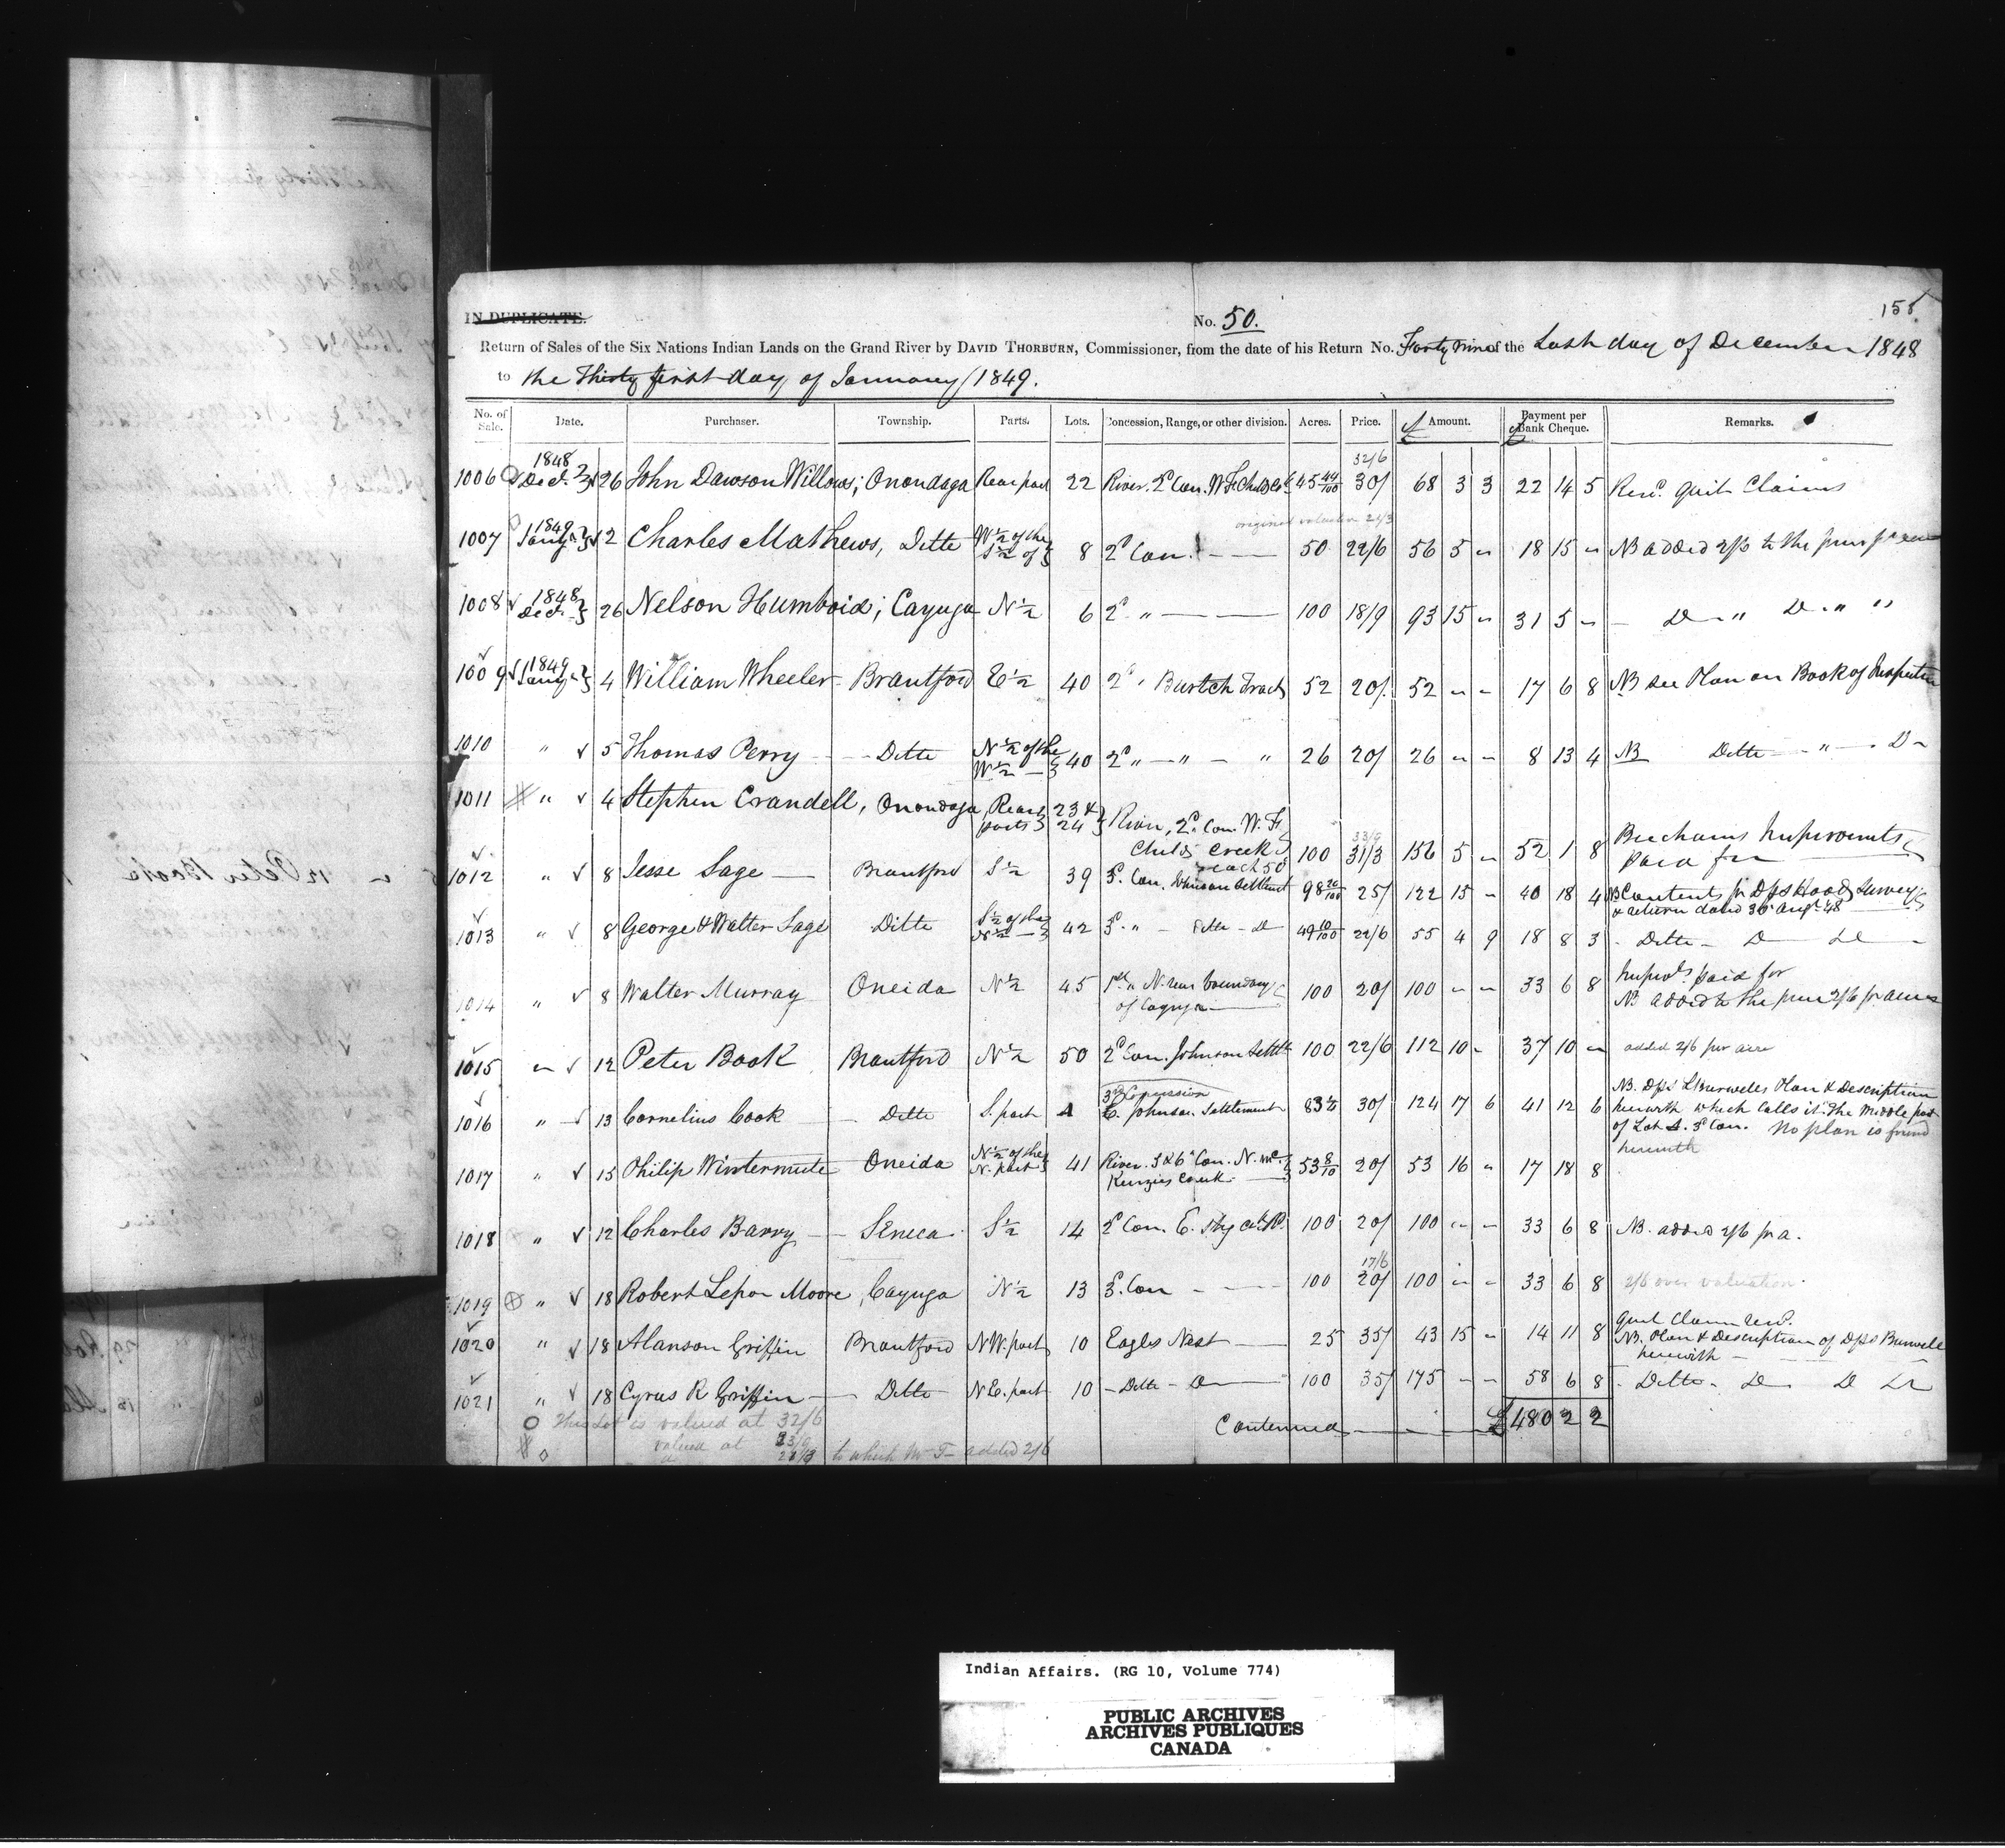 155
IN DUPLICATE.
No. 50.
Return of Sales of the Six Nations Indian Lands on the Grand River by DAVID THORBURN, Commissioner, from the date of his Return No. Forty nine of the Last day of December 1848
to the Thirty first day of January 1849.
No. of Sale. Date. Purchaser. Township. Parts. Lots. Concession, Range, or other division. Acres. Price. £ Amount. £ Payment per Bank Cheque. Remarks.
32/6
1006 1848 Decr. 26 John Dawson Willows; Onondaga Rear part 22 River. 2d Con. W. F. Childs Ck 45 44/100 30/ 68 3 3 22 14 5 Recd. quit Claims
original valuation 21/3
1007 1849 Jany. 2 Charles Mathews, Ditto W 1/2 of the S 1/2 of 8 2d Con. 50 22/6 56 5 " 18 15 " NB added 2/6 to the
1008 1848 Decr. 26 Nelson Humboid; Cayuga N 1/2 6 2d " 100 18/9 93 15 " 31 5 " Do " Do " "
1009 1849 Jany. 4 William Wheeler Brantford E 1/2 40 2d " Burtch Tract 52 20/ 52 " " 17 6 8 NB see Plan on Book of Inspection
1010 " 5 Thomas Perry Ditto N 1/2 of the W 1/2 40 2d " " " 26 20/ 26 " " 8 13 4 NB Ditto " Do
1011 " 4 Stephen Crandell, Onondaga Rear parts 23 & 24 River, 2d Con. W. F.
Childs Creek each 50 100 33/9 31/3 156 5 " 52 1 8 Beechams Improvements paid for
1012 " 8 Jesse Sage Brantford S 1/2 39 3d Con. Johnson Settlement 98 20/100 25/ 122 15 " 40 18 4 NB Contents pr Dps Hoods Survey
& return dated 30 Augt 48
1013 " 8 George & Walter Sage Ditto S 1/2 of the N 1/2 42 3d " Ditto Do 49 10/100 22/6 55 4 9 18 8 3 Ditto Do Do
1014 " 8 Walter Murray Oneida N 1/2 45 1st " N. rear boundary of Cayuga 100 20/ 100 " " 33 6 8 Improts paid for
NB added to the price 2/6 pr acre
1015 " 12 Peter Book Brantford N 1/2 50 2d Con. Johnson Settlt 100 22/6 112 10 " 37 10 " added 2/6 per acre
3d Concession
1016 " 13 Cornelius Cook Ditto S. part 4 E. Johnson Settlement 83 1/4 30/ 124 17 6 41 12 6 NB. Dps L Burwells Plan & Description
herewith which calls it the middle part
of Lot 4. 3d Con. No plan is found
herewith
1017 " 15 Philip Wintermute Oneida N 1/2 of the N. part 41 River. 5 & 6 Con. N. McKenzies Creek 53 8/10 20/ 53 16 " 17 18 8
1018 " 12 Charles Barry Seneca S 1/2 14 2d Con. E. 100 20/ 100 " " 33 6 8 NB. added 2/6 pr a.
17/6
1019 " 18 Robert Lepon Moore, Cayuga N 1/2 13 3d Con 100 20/ 100 " " 33 6 8 2/6 over valuation.
1020 " 18 Alanson Griffin Brantford NW. part 10 Eagles Nest 25 35/ 43 15 " 14 11 8 quit Claim recd.
NB. Plan & Description of Dps Burwell
herewith
1021 " 18 Cyrus R Griffin Ditto NE. part 10 Ditto Do 100 35/ 175 " " 58 6 8 Ditto Do Do Do
Continued £ 480 2 2
This Lot is valued at 32/6
valued at 33/9
" 21/3 to which Mr T added 2/6
12 Peter Book
Indian Affairs. (RG 10, Volume 774)
PUBLIC ARCHIVES
ARCHIVES PUBLIQUES
CANADA